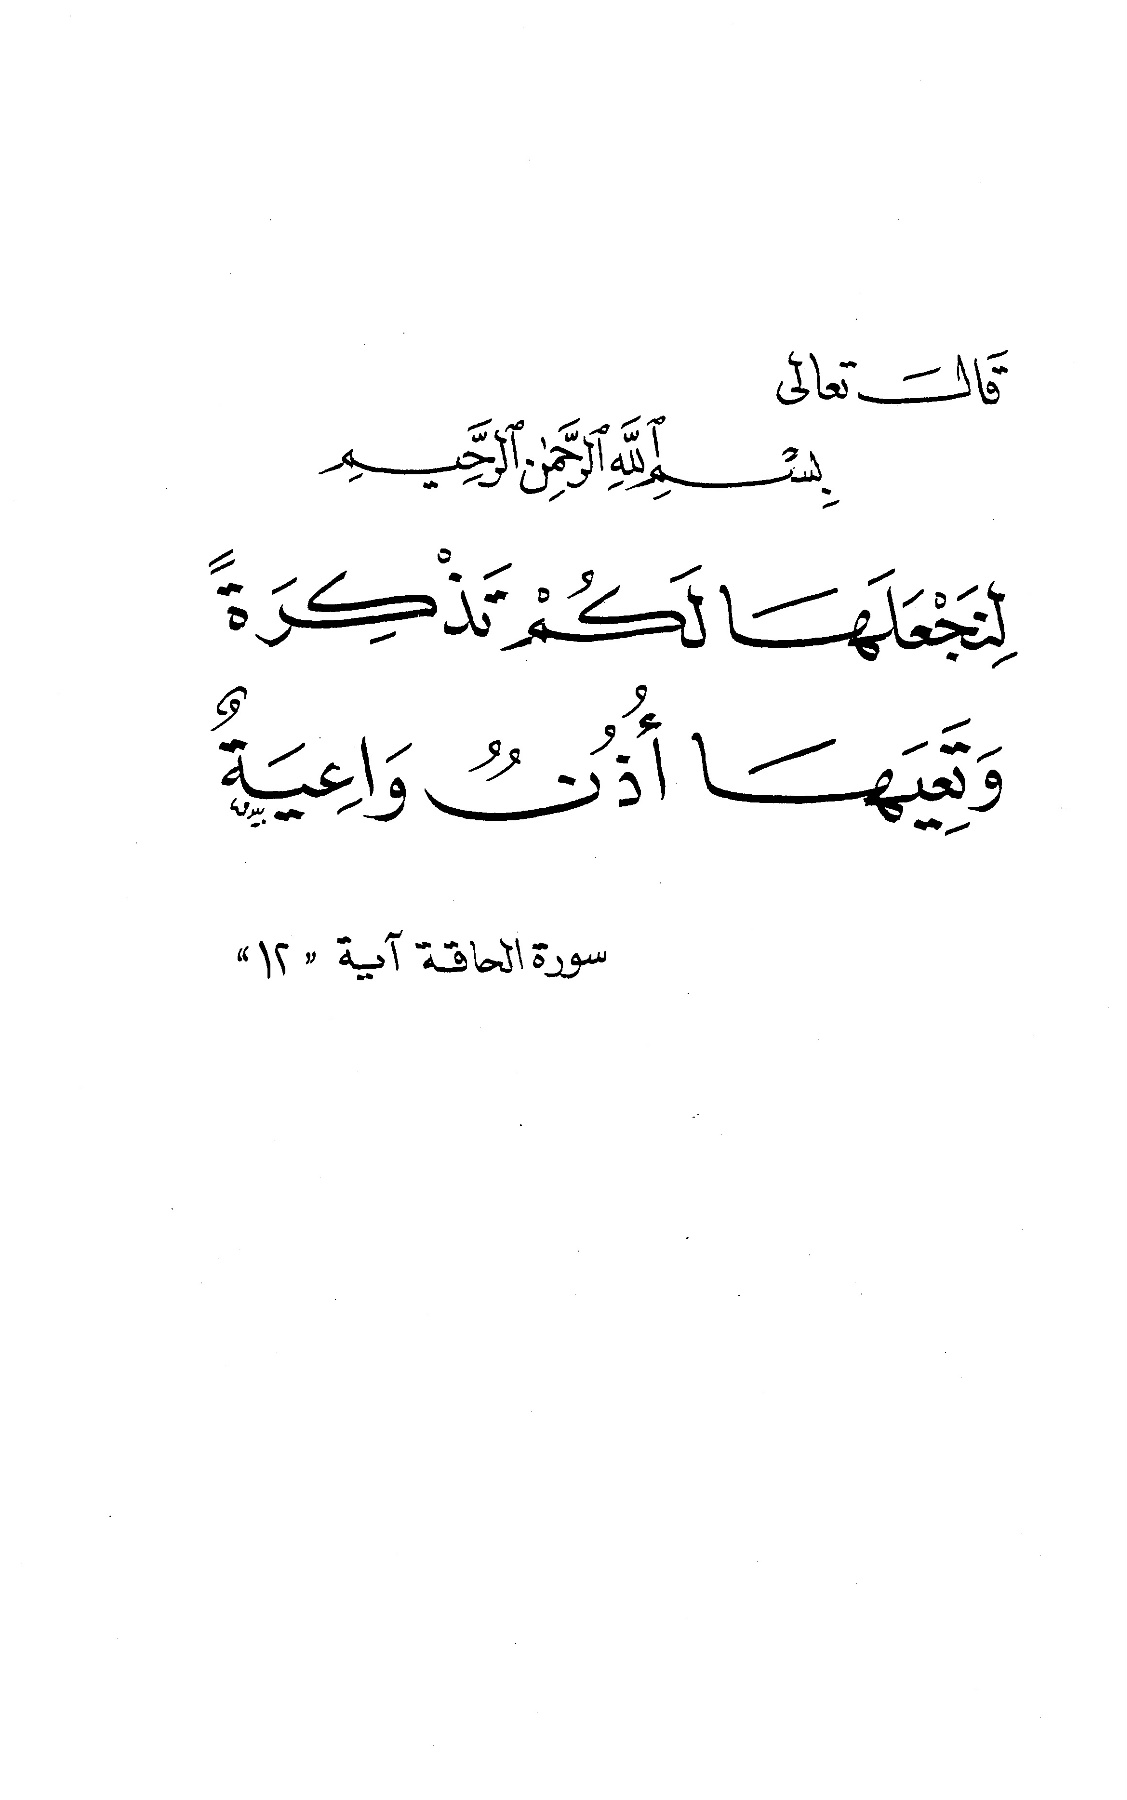 قَالَ تعالى
بِسْمِ ٱللَّهِ ٱلرَّحْمَٰنِ ٱلرَّحِيمِ
لِنَجْعَلَهَا لَكُمْ تَذْكِرَةً
وَتَعِيَهَا أُذُنٌ وَاعِيَةٌ
سورة الحاقة آية «١٢»